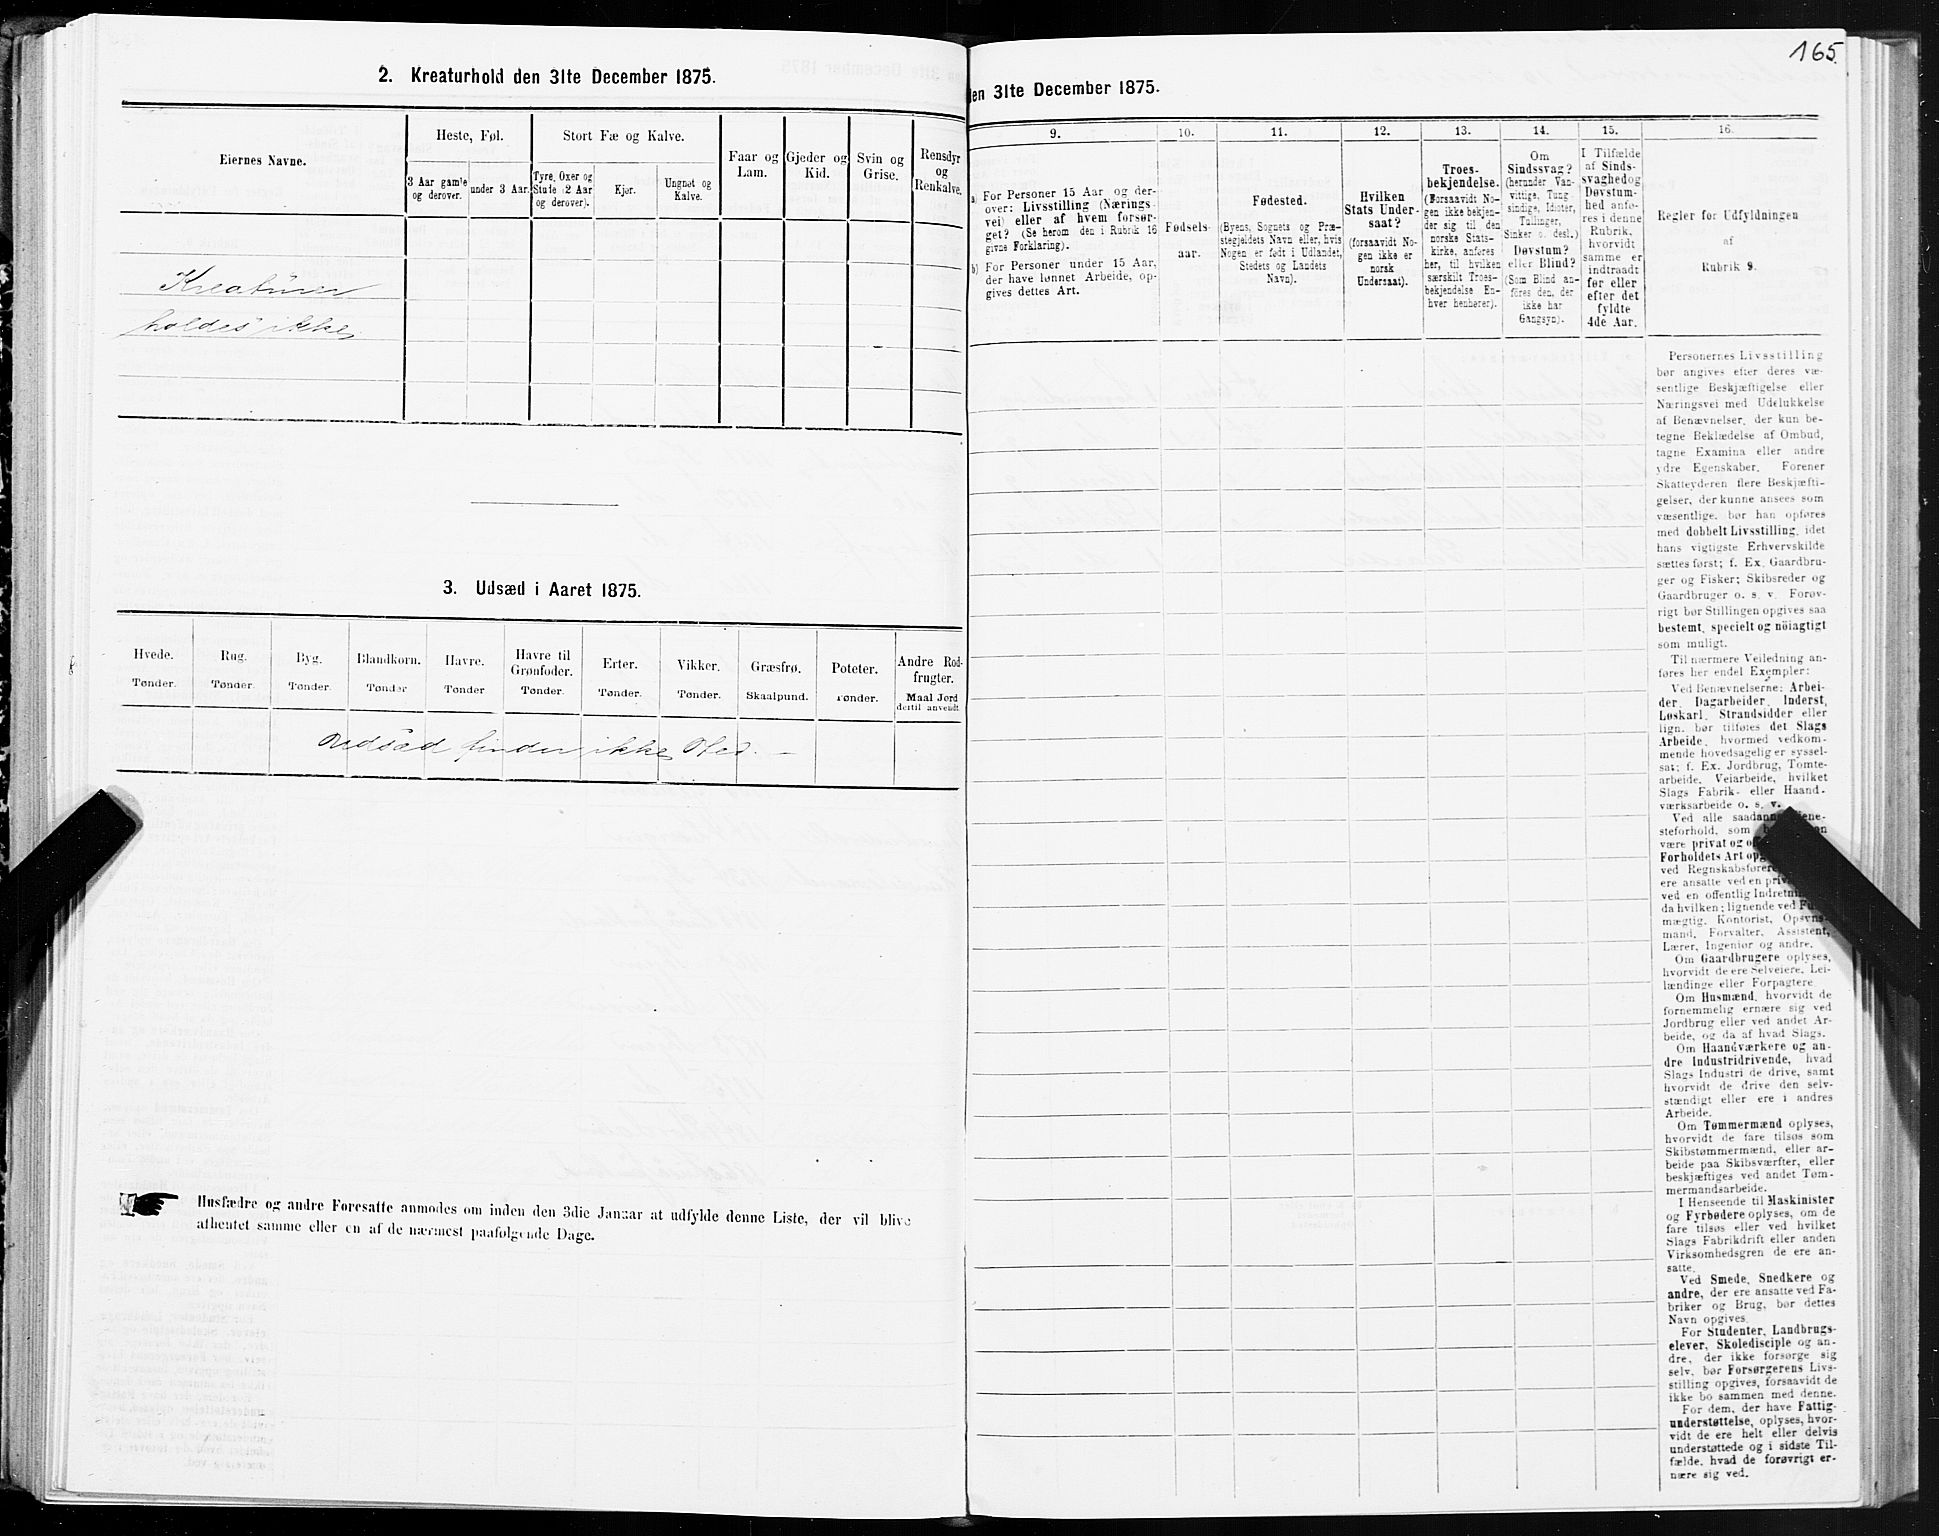 2. Kreaturhold den 31te December 1875.
Eiernes Navne.
Heste, Føl.
3 Aar gamle
og derover.
under 3 Aar.
Stort Fæ og Kalve.
Tyre, Oxer og
Stude (2 Aar
og derover).
Kjør.
Ungnøt og
Kalve.
Faar og
Lam.
Gjeder og
Kid.
Svin og
Grise.
Rensdyr
og
Renkalve.
Kreaturer
holdes ikke
3. Udsæd i Aaret 1875.
Hvede.
Tønder.
Rug.
Tønder.
Byg.
Tønder.
Blandkorn.
Tønder
Havre.
Tønder
Havre til
Grønfoder.
Tønder.
Erter.
Tønder.
Vikker.
Tønder.
Græsfrø.
Skaalpund.
Poteter.
Tønder.
Andre Rod-
frugter.
Maal Jord
dertil anvendt.
Udsæd finder ikke Sted. –
Husfædre og andre Foresatte anmodes om inden den 3die Januar at udfylde denne Liste, der vil blive
afhentet samme eller en af de nærmest paafølgende Dage.
165.
den 31te December 1875.
9.
a) For Personer 15 Aar og der-
over: Livsstilling (Nærings-
vei) eller af hvem forsør-
get? (Se herom den i Rubrik 16
givne Forklaring).
b) For Personer under 15 Aar,
der have lønnet Arbeide, op-
gives dettes Art.
10.
Fødsels-
aar.
11.
Fødested.
(Byens, Sognets og Præ-
stegjeldets Navn eller, hvis
Nogen er født i Udlandet,
Stedets og Landets
Navn).
12.
Hvilken
Stats Under-
saat?
(forsaavidt No-
gen ikke er
norsk
Undersaat).
13.
Troes-
bekjendelse.
(Forsaavidt No-
gen ikke bekjen-
der sig til den
norske Stats-
kirke, anføres
her, til hvilken
særskilt Troes-
bekjendelse En-
hver henhører).
14.
Om
Sindssvag?
(herunder Van-
vittige, Tung-
sindige, Idioter,
Tullinger,
Sinker o. desl.)
Døvstum?
eller Blind?
(Som Blind an-
føres den, der
ikke har
Gangsyn).
15.
I Tilfælde
af Sinds-
svaghed og
Døvstum-
hed anfø-
res i denne
Rubrik,
hvorvidt
samme er
indtraadt
før eller
efter det
fyldte
4de Aar.
16.
Regler for Udfyldningen
af
Rubrik 9.
Personernes Livsstilling
bør angives efter deres væ-
sentlige Beskjæftigelse eller
Næringsvei med Udelukkelse
af Benævnelser, der kun be-
tegne Beklædelse af Ombud,
tagne Examina eller andre
ydre Egenskaber. Forener
Skatteyderen flere Beskjæfti-
gelser, der kunne ansees som
væsentlige, bør han opføres
med dobbelt Livsstilling, idet
hans vigtigste Erhvervskilde
sættes først; f. Ex. Gaardbru-
ger og Fisker; Skibsreder og
Gaardbruger o. s. v. Forøv-
rigt bør Stillingen opgives saa
bestemt, specielt og nöiagtigt
som muligt.
Til nærmere Veiledning an-
føres her endel Exempler:
Ved Benævnelserne: Arbei-
der, Dagarbeider, Inderst,
Løskarl, Strandsidder eller
lign. bør tilføies det Slags
Arbeide, hvormed vedkom-
mende hovedsagelig er syssel-
sat; f. Ex. Jordbrug, Tomte-
arbeide, Veiarbeide, hvilket
Slags Fabrik- eller Haand-
værksarbeide o. s. v.
Ved alle saadanne Tjene-
steforhold, som
være privat og
Forholdets Art
ved Regnskabsførere,
ere ansatte ved en
ved en offentlig
da hvilken; lignende ved
mægtig, Kontorist, Opsyns-
mand, Forvalter, Assistent,
Lærer, Ingeniør og andre.
Om Gaardbrugere oplyses,
hvorvidt de ere Selveiere, Lei-
lændinge eller Forpagtere.
Om Husmænd, hvorvidt de
fornemmelig ernære sig ved
Jordbrug eller ved andet Ar-
beide, og da af hvad Slags.
Om Haandværkere og an-
dre Industridrivende, hvad
Slags Industri de drive, samt
hvorvidt de drive den selv-
stændigt eller ere i andres
Arbeide.
Om Tømmermænd oplyses,
hvorvidt de fare tilsøs som
Skibstømmermænd, eller ar-
beide paa Skibsværfter, eller
beskjæftiges ved andet Tøm-
mermandsarbeide.
I Henseende til Maskinister
og Fyrbødere oplyses, om de
fare tilsøs eller ved hvilket
Slags Fabrikdrift eller anden
Virksomhedsgren de ere an-
satte.
Ved Smede, Snedkere og
andre, der ere ansatte ved Fa-
briker og Brug, bør dettes
Navn opgives.
For Studenter, Landbrugs-
elever, Skoledisciple og an-
dre, der ikke forsørge sig
selv, bør Forsørgerens Livs-
stilling opgives, forsaavidt de
ikke bo sammen med denne.
For dem, der have Fattig-
understøttelse, oplyses, hvor-
vidt de ere helt eller delvis
understøttede og i sidste Til-
fælde, hvad de forøvrigt er-
nære sig ved.